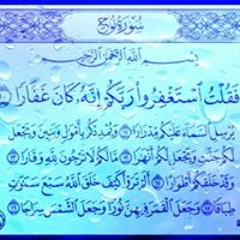 سُورَةُ نُوحٍ
بِسْمِ ٱللَّهِ ٱلرَّحْمَٰنِ ٱلرَّحِيمِ
فَقُلْتُ ٱسْتَغْفِرُوا۟ رَبَّكُمْ إِنَّهُۥ كَانَ غَفَّارًا ١٠
يُرْسِلِ ٱلسَّمَآءَ عَلَيْكُم مِّدْرَارًا ١١ وَيُمْدِدْكُم بِأَمْوَٰلٍ وَبَنِينَ وَيَجْعَل
لَّكُمْ جَنَّٰتٍ وَيَجْعَل لَّكُمْ أَنْهَٰرًا ١٢ مَّا لَكُمْ لَا تَرْجُونَ لِلَّهِ وَقَارًا ١٣
وَقَدْ خَلَقَكُمْ أَطْوَارًا ١٤ أَلَمْ تَرَوْا۟ كَيْفَ خَلَقَ ٱللَّهُ سَبْعَ سَمَٰوَٰتٍ
طِبَاقًا ١٥ وَجَعَلَ ٱلْقَمَرَ فِيهِنَّ نُورًا وَجَعَلَ ٱلشَّمْسَ سِرَاجًا ١٦